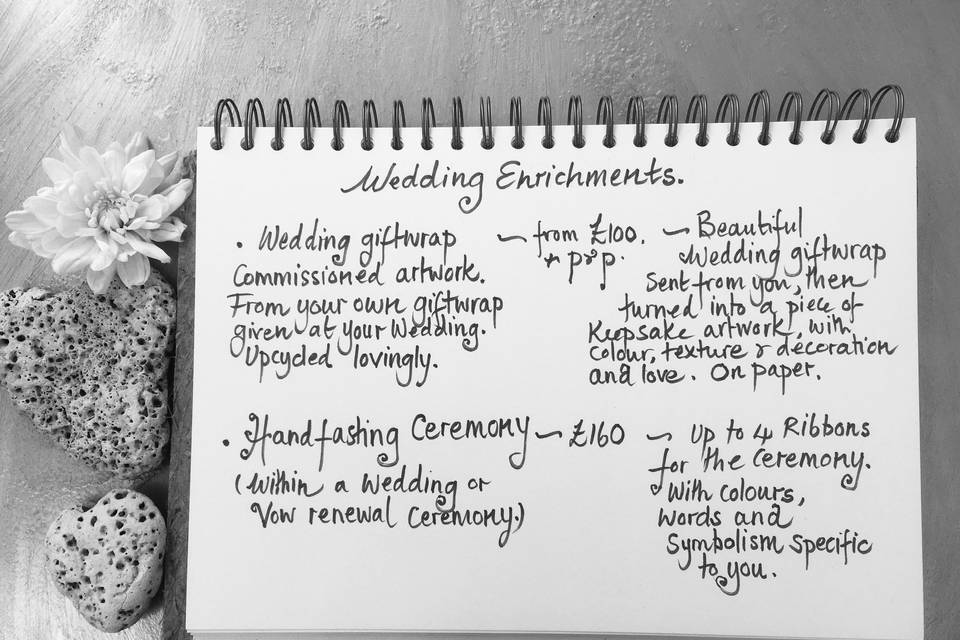 Wedding Enrichments.
• Wedding giftwrap
Commissioned artwork.
From your own giftwrap
given at your Wedding.
Upcycled lovingly.
~ from £100.
+ p&p.
~ Beautiful
Wedding giftwrap
Sent from you, then
turned into a piece of
Keepsake artwork, with
colour, texture & decoration
and love. On paper.
• Handfasting Ceremony ~ £160
(Within a Wedding or
Vow renewal Ceremony.)
~ Up to 4 Ribbons
for the Ceremony.
With colours,
words and
Symbolism specific
to you.